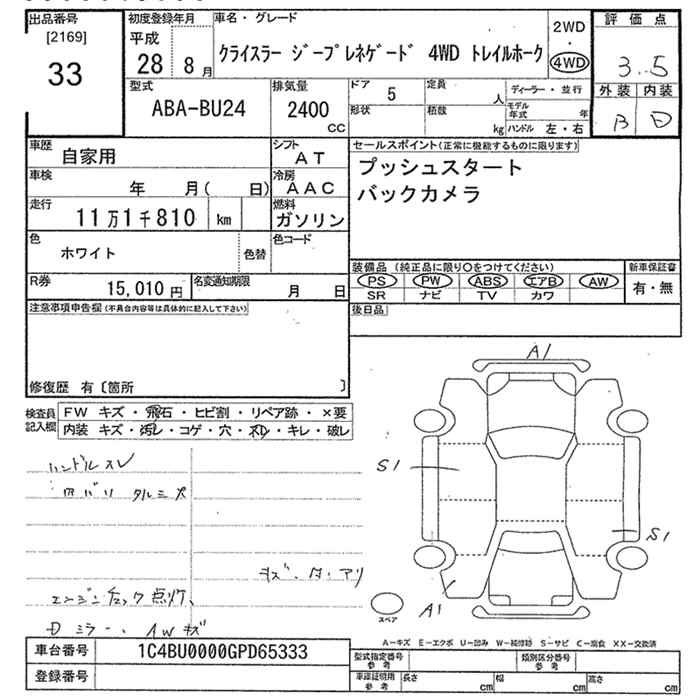 出品番号 初度登録年月 車名・グレード 2WD 評価点
[2169] 平成 ・
33 28 8月 クライスラー ジープレネゲード 4WD トレイルホーク 4WD 3.5
型式 排気量 ドア 5 定員 人 ディーラー・並行 外装 内装
ABA-BU24 2400 CC 形状 積数 kg モデル年式 年 B D
ハンドル 左・右
車歴 自家用 シフト AT セールスポイント(正常に機能するものに限ります)
車検 年 月( 日) 冷房 AAC プッシュスタート
走行 11万1千810 km 燃料 ガソリン バックカメラ
色 ホワイト 色替 色コード
装備品 (純正品に限り○をつけてください) 新車保証書
R券 15,010円 名変通知期限 月 日 PS PW ABS エアB AW 有・無
SR ナビ TV カワ
注意事項申告欄(不具合内容等は具体的に記入して下さい) 後日品
修復歴 有〔箇所 〕
A1
検査員 FW キズ・飛石・ヒビ割・リペア跡・×要
記入欄 内装 キズ・汚レ・コゲ・穴・スレ・キレ・破レ
ハンドルスレ S1
タルミ大
S1
キズ・ A1
エンジンチェック点灯、
スペア
Dミラー、AWキズ A-キズ E-エクボ U-凹み W-補修跡 S-サビ C-腐食 XX-交換済
車台番号 1C4BU0000GPD65333 型式指定番号 参考 類別区分番号 参考
登録番号 車庫証明用 参考 長さ cm 幅 cm 高さ cm